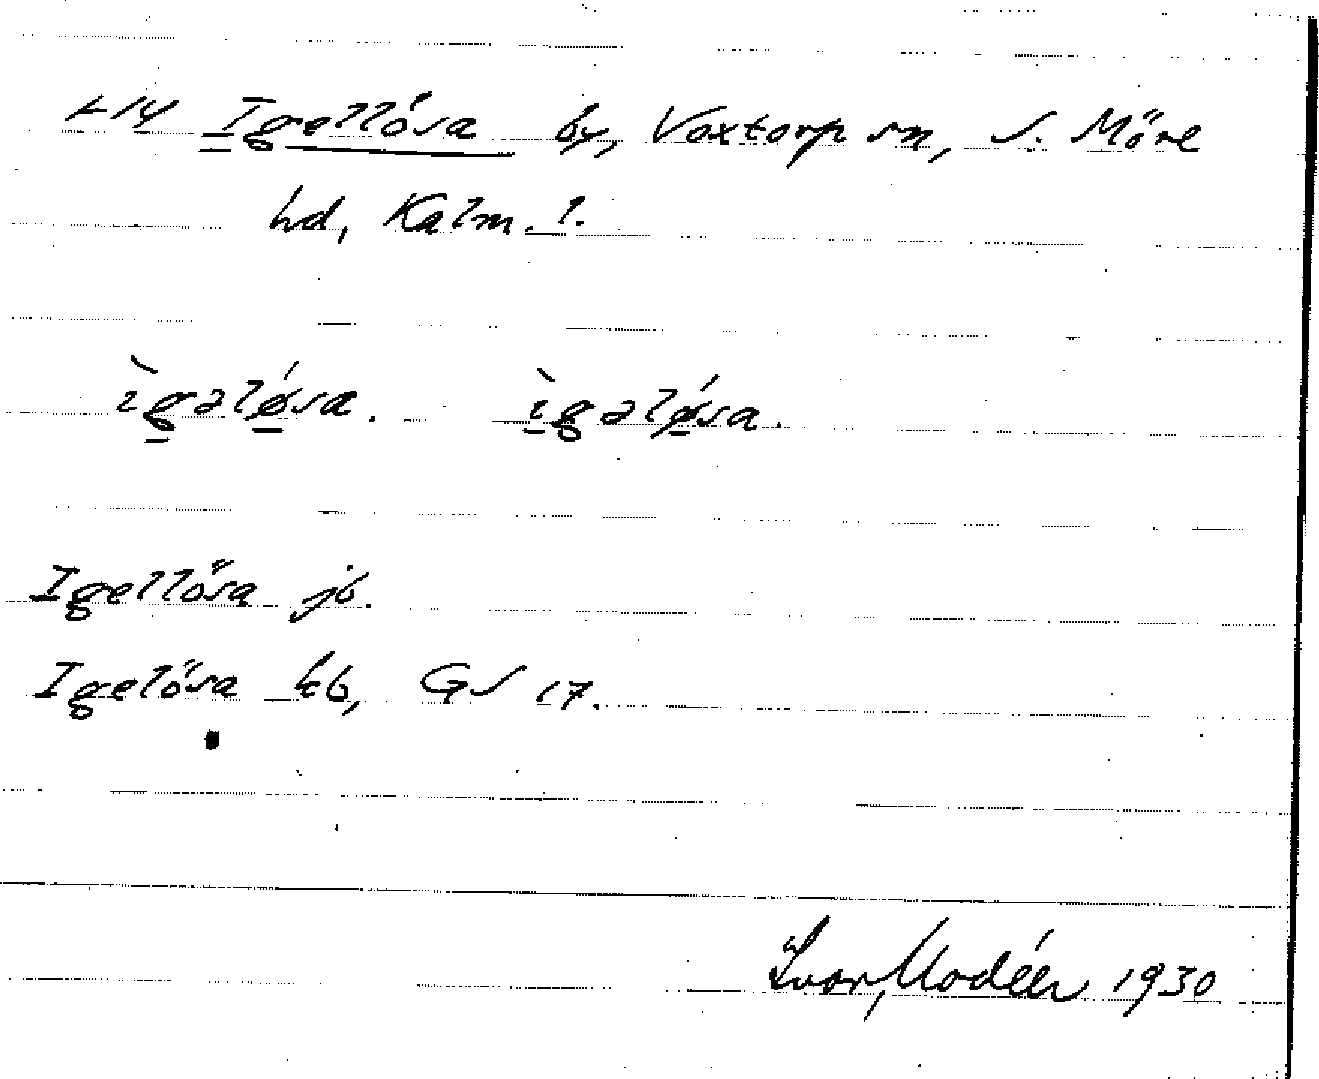 Igellösa by, Voxtorp sn, S. Möre
hd, Kalm. l.
ìgǝlǿsa. ìgǝlǿsa.
Igellösa jb.
Igelösa kb, GS 17.
Ivar Modéer 1930